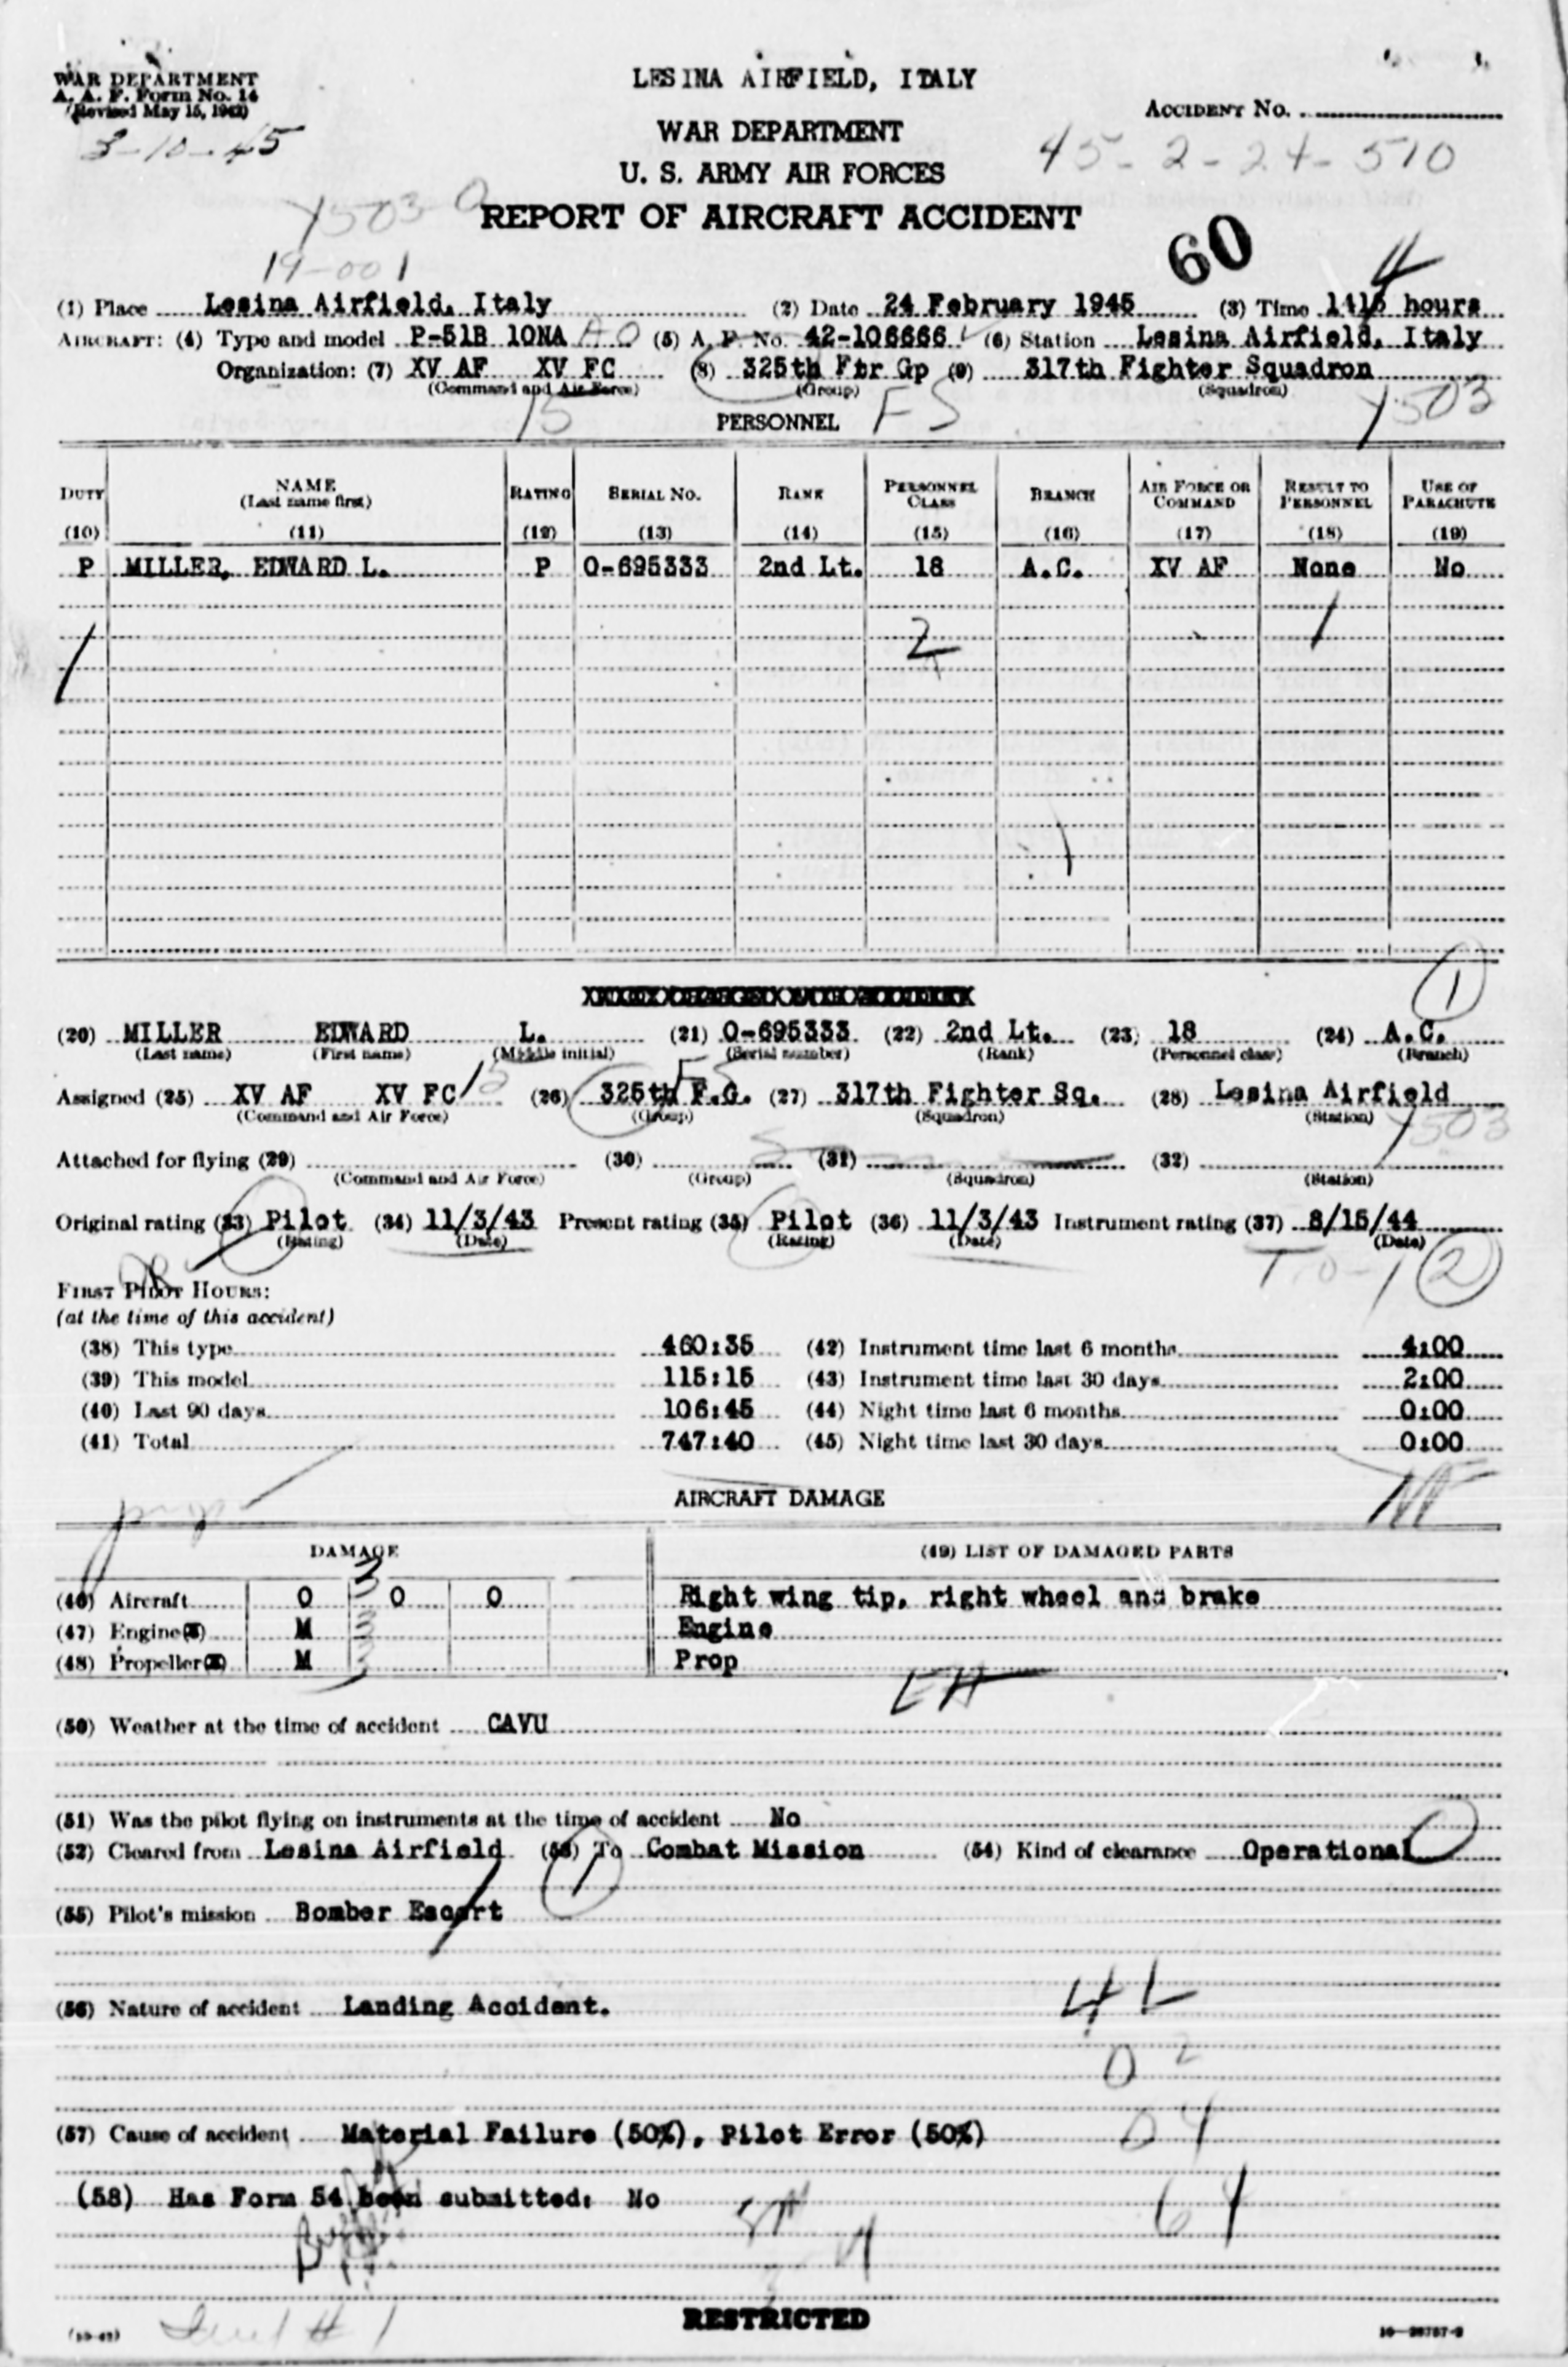 WAR DEPARTMENT
A. A. F. Form No. 14
(Revised May 15, 1942)
3-10-45
LESINA AIRFIELD, ITALY
WAR DEPARTMENT
U. S. ARMY AIR FORCES
REPORT OF AIRCRAFT ACCIDENT
ACCIDENT No.
45-2-24-510
Y503
19-001
60
(1) Place Lesina Airfield, Italy (2) Date 24 February 1945 (3) Time 1415 hours
AIRCRAFT: (4) Type and model P-51B 10NA (5) A. F. No. 42-106666 (6) Station Lesina Airfield, Italy
Organization: (7) XV AF XV FC (8) 325th Ftr Gp (9) 317th Fighter Squadron
(Command and Air Force) (Group) (Squadron)
15 FS Y503
PERSONNEL
DUTY NAME (Last name first) RATING SERIAL No. RANK PERSONNEL CLASS BRANCH AIR FORCE OR COMMAND RESULT TO PERSONNEL USE OF PARACHUTE
(10) (11) (12) (13) (14) (15) (16) (17) (18) (19)
P MILLER, EDWARD L. P O-695333 2nd Lt. 18 A.C. XV AF None No
2
1
(20) MILLER EDWARD L. (21) O-695333 (22) 2nd Lt. (23) 18 (24) A.C.
(Last name) (First name) (Middle initial) (Serial number) (Rank) (Personnel class) (Branch)
Assigned (25) XV AF XV FC (26) 325th F.G. (27) 317th Fighter Sq. (28) Lesina Airfield
(Command and Air Force) (Group) (Squadron) (Station)
Y503
Attached for flying (29) (30) (31) (32)
(Command and Air Force) (Group) (Squadron) (Station)
Original rating (33) Pilot (34) 11/3/43 Present rating (35) Pilot (36) 11/3/43 Instrument rating (37) 8/15/44
(Rating) (Date) (Rating) (Date) (Date)
2
FIRST PILOT HOURS:
(at the time of this accident)
(38) This type 460:35 (42) Instrument time last 6 months 4:00
(39) This model 115:15 (43) Instrument time last 30 days 2:00
(40) Last 90 days 106:45 (44) Night time last 6 months 0:00
(41) Total 747:40 (45) Night time last 30 days 0:00
AIRCRAFT DAMAGE
DAMAGE (49) LIST OF DAMAGED PARTS
(46) Aircraft O O O Right wing tip, right wheel and brake
(47) Engine(s) M Engine
(48) Propeller(s) M Prop
(50) Weather at the time of accident CAVU
(51) Was the pilot flying on instruments at the time of accident No
(52) Cleared from Lesina Airfield (53) To Combat Mission (54) Kind of clearance Operational
(55) Pilot's mission Bomber Escort
(56) Nature of accident Landing Accident.
(57) Cause of accident Material Failure (50%), Pilot Error (50%)
(58) Has Form 54 been submitted: No
RESTRICTED